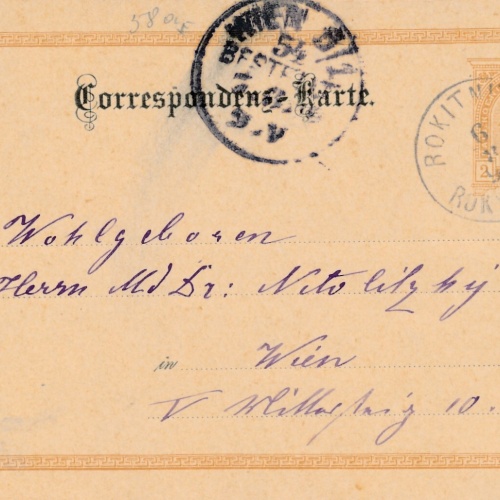 58
WIEN 5/1
54
BESTELLT
Correspondenz-Karte.
ROKITN
6
2
ROK
Wohlgeboren
Herrn Md Dr: Nitolitzky
in Wien
V Mittersteig 10.